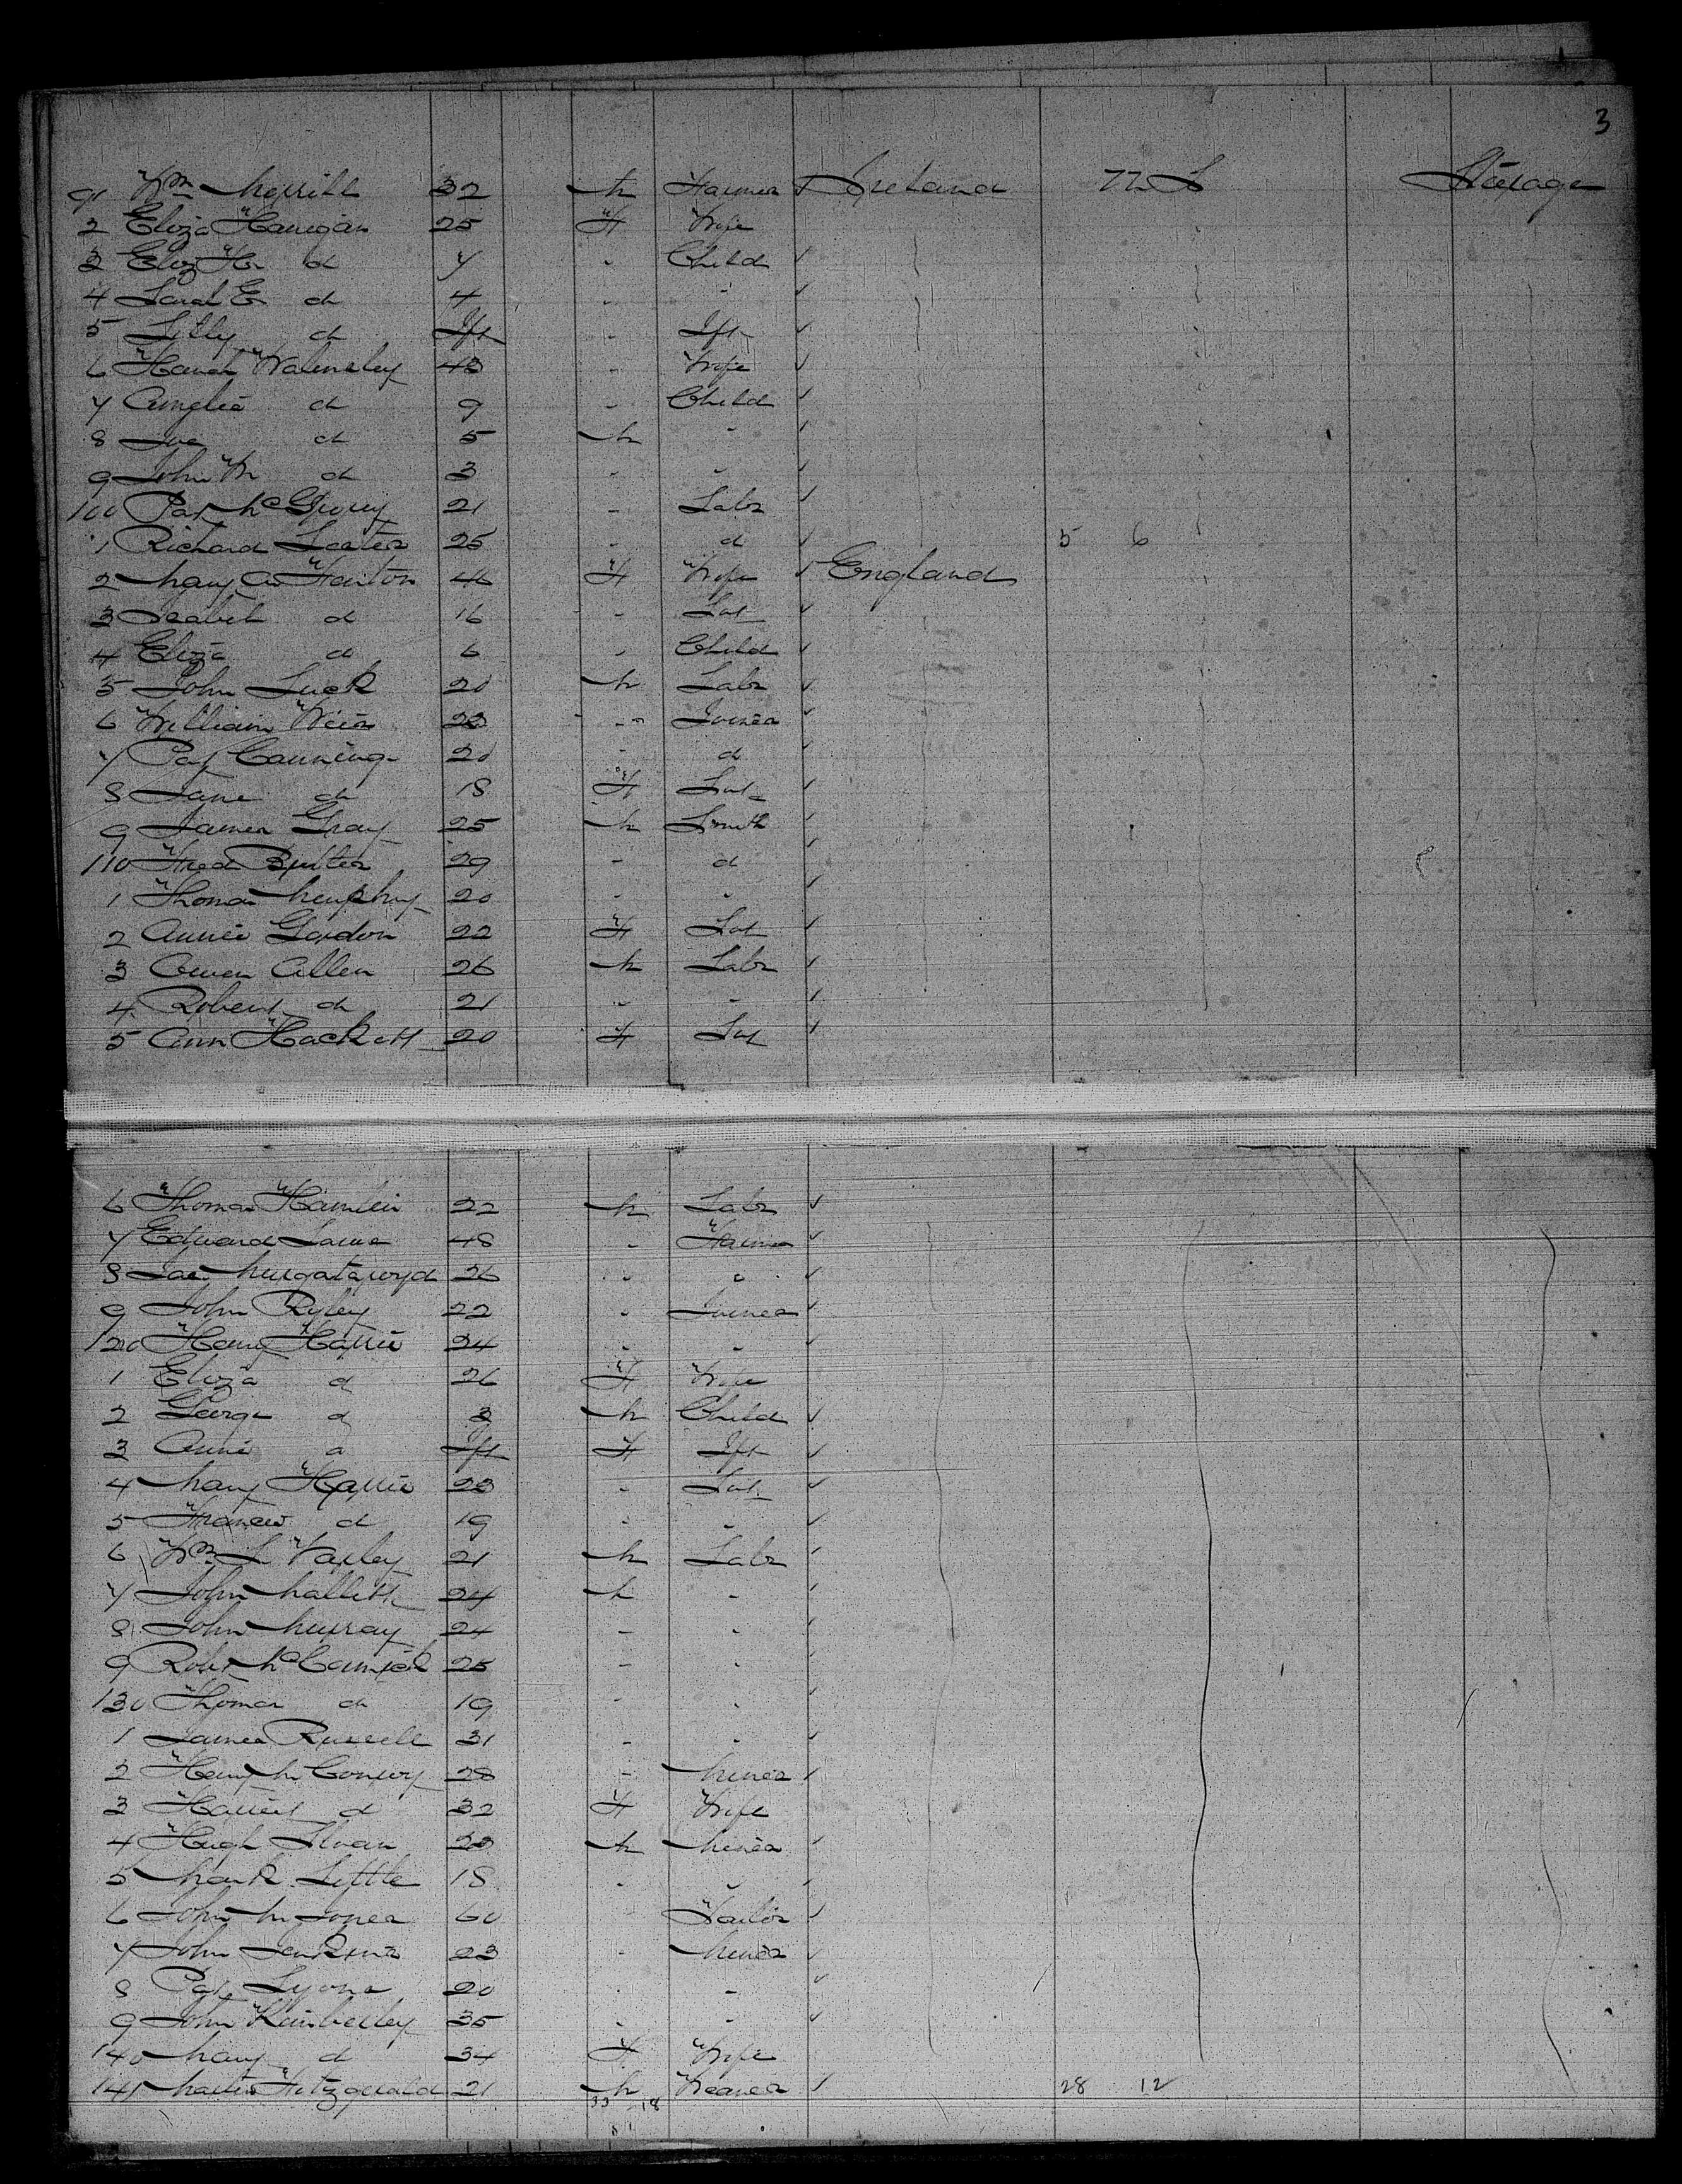 3
91 Wm Merrill 32 M Farmer Ireland U S Steerage
2 Eliza Hanigan 25 F Wife
3 Eliz H. d 7 " Child
4 Sarah E d 4 " "
5 Lilly d Ift " Ift
6 Hanah Walmsley 43 " Wife
7 d 9 " Child
8 d 5 M "
9 John W d 3 " "
100 Pat 21 " Labr
1 Richard 25 " d 5 6
2 Mary A 46 F Wife England
3 Isabel d 16 "
4 Eliza d 6 " Child
5 John Luck 20 M Labr
6 William Weir 23 " Joiner
7 Pat Canning 20 " d
8 Jane d 18 F
9 James Gray 25 M Smith
110 Fred 29 " d
1 Thomas Murphy 20 " "
2 Annie Gordon 22 F
3 Owen Allen 26 M Labr
4 Robert d 21 " "
5 Ann Hackett 20 F
6 Thomas Hamlin 22 M Labr
7 Edward 48 " Farmer
8 Jas Murgatroyd 26 " "
9 John Ryley 22 " Joiner
120 Henry Harris 24 " "
1 Eliza d 26 F Wife
2 George d 3 M Child
3 Annie d Ift F Ift
4 Mary Harris 23 "
5 Frances d 19 " "
6 Wm L Varley 21 M Labr
7 John 24 M "
8 John Murray 24 " "
9 Robt McCormick 25 " "
130 Thomas d 19 " "
1 James Russell 31 " "
2 Henry 28 " Miner
3 Harriet d 32 F Wife
4 Hugh Sloan 23 M Miner
5 Mark Little 18 " "
6 John M Jones 60 Tailor
7 John Jenkins 23 " Miner
8 Pat Lyons 20 " "
9 John Kimberley 35 " "
140 Mary d 34 F Wife
141 Fitzgerald 21 M Weaver 28 12
33 18